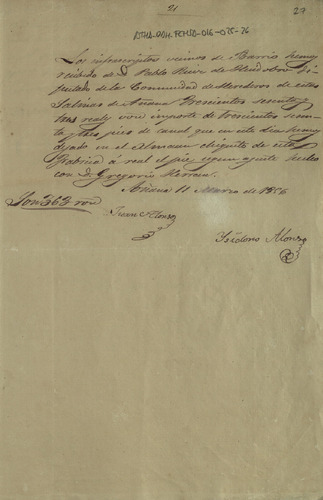 21
27
ATHA-DAH-FCMSD-016-075-26
Los infrascriptos vecinos de Barrio hemos
recibido de D. Pablo de Mendibil Di-
putado de la Comunidad de Herederos de estas
Salinas de Añana trescientos sesenta y
tres reales von importe de trescientos sesen-
ta y tres pies de canal que en este día hemos
dejado en el Almacen chiquito de esta
Fabrica á real el pie segun ajuste hecho
con D. Gregorio Herran.
Añana 11 Marzo de
Son 363 ron
Juan Alonso
Isidoro Alonso